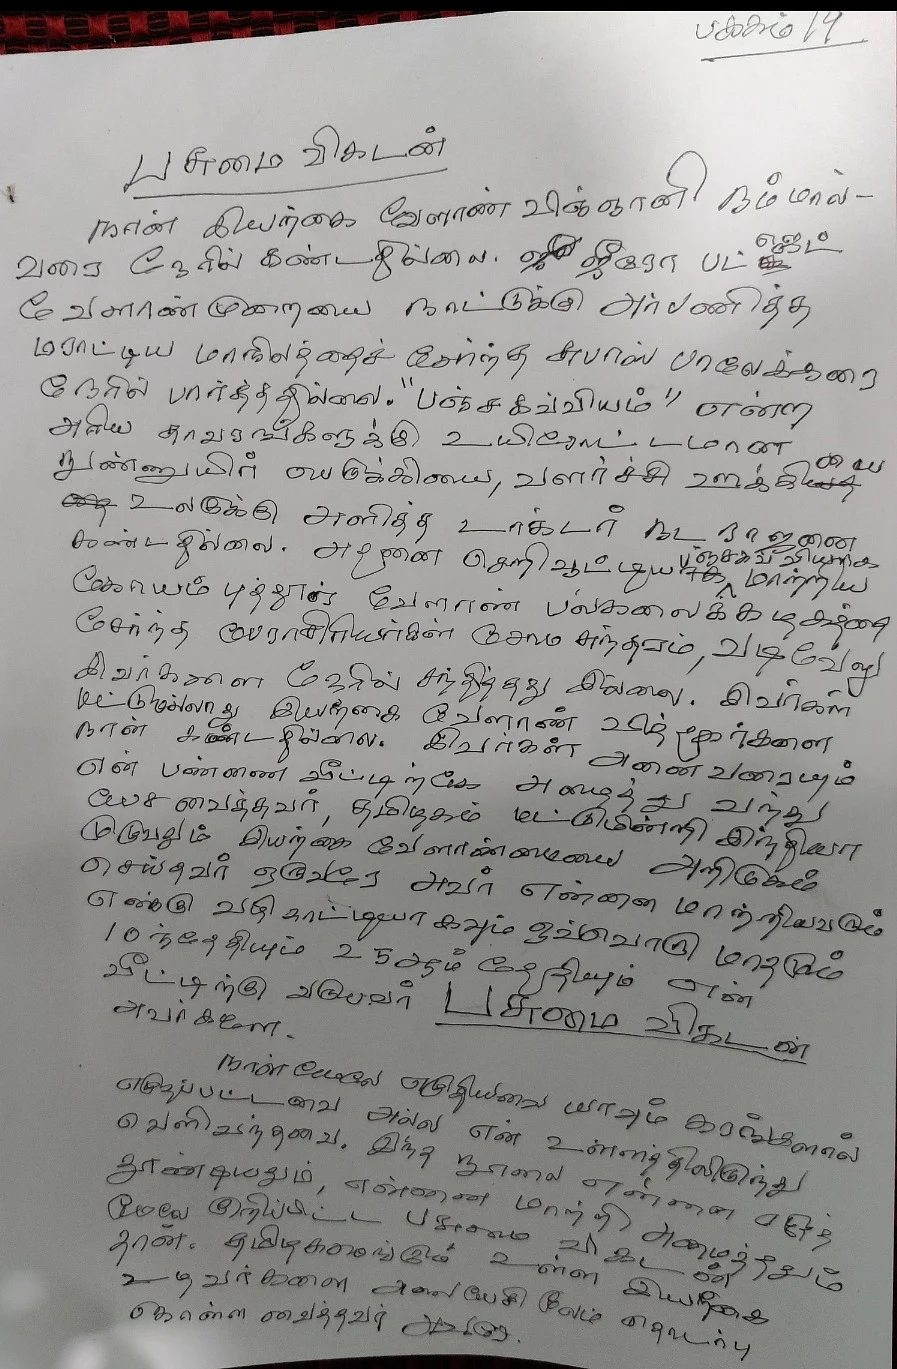 பக்கம் 14
பசுமை விகடன்
நான் இயற்கை வேளாண் விஞ்ஞானி நம்மால்-
வரை நேரில் கண்டதில்லை. ஜீரோ பட்ஜெட்
வேளாண்முறையை நாட்டுக்கு அர்பணித்த
மராட்டிய மாநிலத்தைச் சேர்ந்த சுபாஸ் பாலேக்கரை
நேரில் பார்த்ததில்லை. "பஞ்சகவ்வியம்" என்ற
அரிய தாவரங்களுக்கு உயிரோட்டமான
நுண்ணுயிர் பெருக்கியை, வளர்ச்சி ஊக்கியை
உலகுக்கு அளித்த டாக்டர் நடராஜனை
கண்டதில்லை. அதனை செறிவூட்டிய பஞ்சகவ்வியமாக மாற்றிய
கோயம்புத்தூர் வேளாண் பல்கலைக்கழகத்தை
சேர்ந்த பேராசிரியர்கள் சோமசுந்தரம், வடிவேலு
இவர்களை நேரில் சந்தித்தது இல்லை. இவர்கள்
மட்டுமல்லாது இயற்கை வேளாண் வித்தகர்களை
நான் கண்டதில்லை. இவர்கள் அனைவரையும்
என் பண்ணை வீட்டிற்கே அழைத்து வந்து
பேச வைத்தவர், தமிழகம் மட்டுமின்றி இந்தியா
முழுவதும் இயற்கை வேளாண்மையை அறிமுகம்
செய்தவர் ஒருவரே அவர் என்னை மாற்றியவரும்
எனக்கு வழிகாட்டியாகவும் ஒவ்வொரு மாதமும்
10ந்தேதியும் 25ஆம் தேதியும் என்
வீட்டிற்கு வருபவர் பசுமை விகடன்
அவர்களே.
நான் மேலே எழுதியவை யாவும் கரங்களால்
எழுதப்பட்டவை அல்ல என் உள்ளத்திலிருந்து
வெளிவந்தவை. இந்த நூலை என்னை எழுத
தூண்டியதும், என்னை மாற்றி அமைத்ததும்
மேலே குறிப்பிட்ட பசுமை விகடன்
தான். தமிழகமெங்கும் உள்ள இயற்கை
உழவர்களை அலைபேசி மூலம் தொடர்பு
கொள்ள வைத்தவர் அவரே.